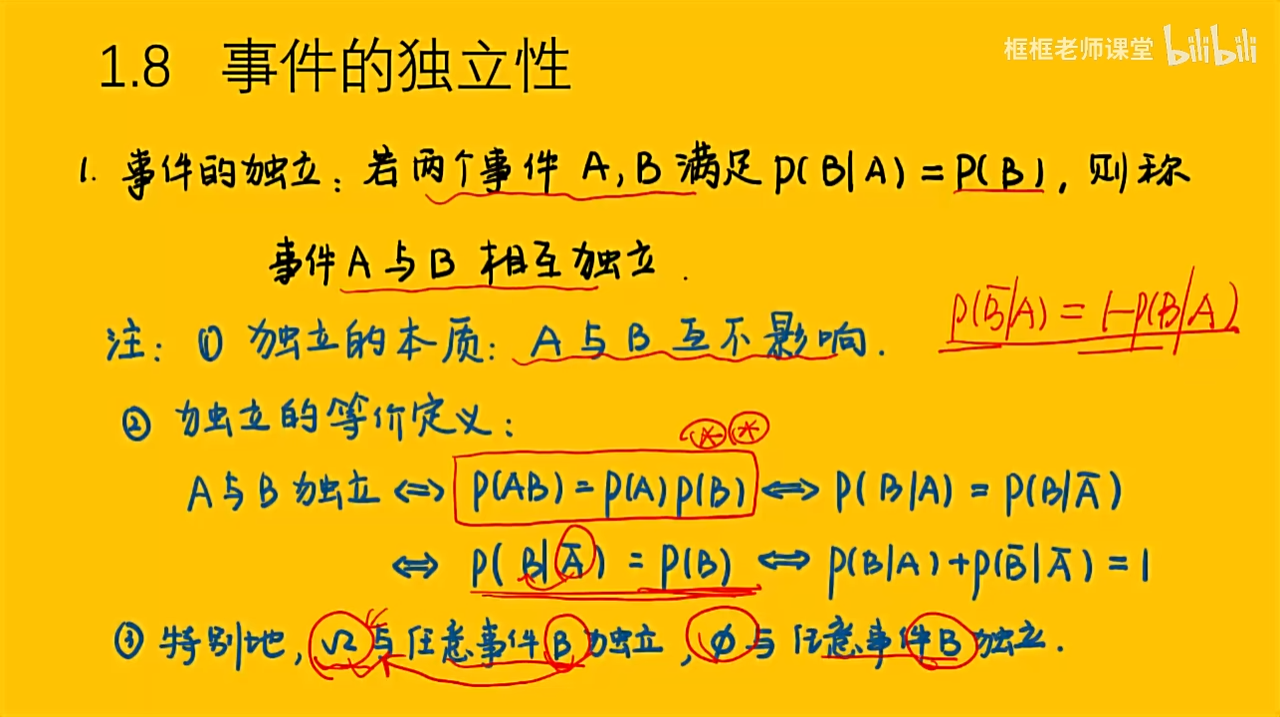 1.8 事件的独立性
框框老师课堂 bilibili
1. 事件的独立：若两个事件 A, B 满足 P(B|A) = P(B)，则称
事件 A 与 B 相互独立.
P(B̅|A) = 1-P(B|A)
注：① 独立的本质：A 与 B 互不影响.
② 独立的等价定义：
A 与 B 独立 ⇔ P(AB) = P(A)P(B) ⇔ P(B|A) = P(B|A̅)
⇔ P(B|A̅) = P(B) ⇔ P(B|A)+P(B̅|A̅) = 1
③ 特别地, Ω 与任意事件 B 独立, ∅ 与任意事件 B 独立.